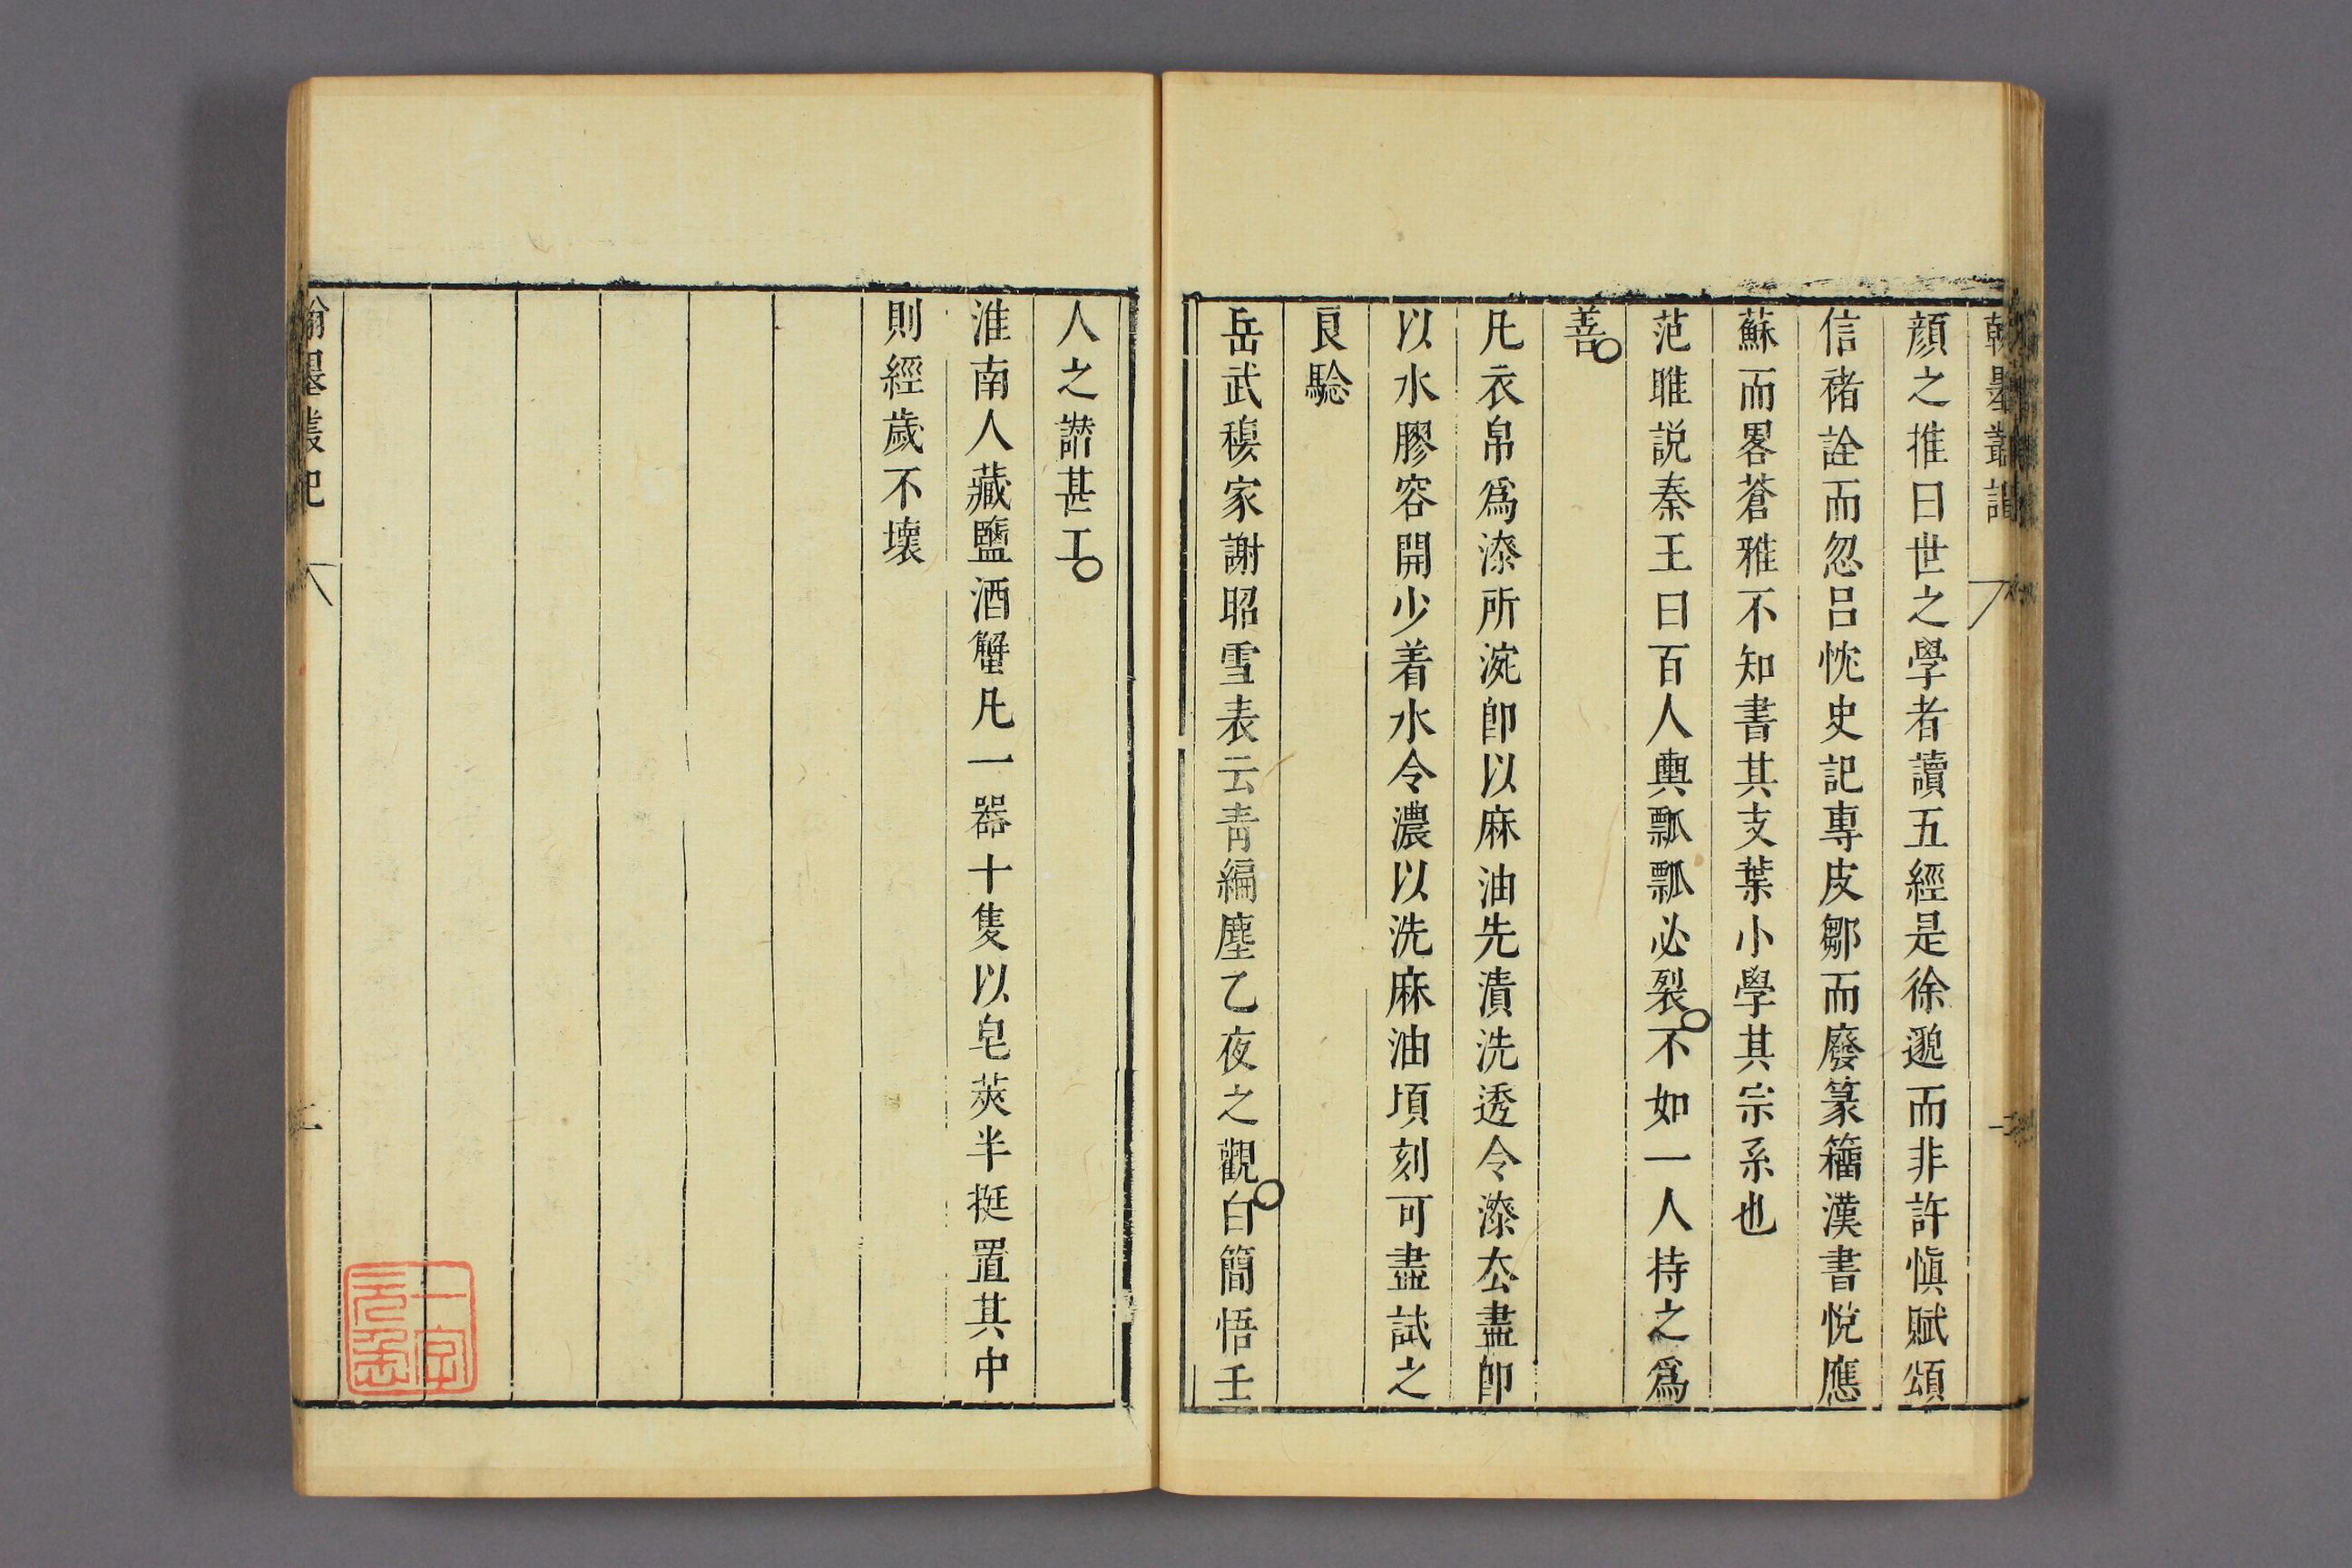 顔之推曰世之學者讀五經是徐邈而非許愼賦頌
信褚詮而忽呂忱史記專皮鄒而廢篆籒漢書悅應
蘇而畧蒼雅不知書其支葉小學其宗系也
范雎説秦王曰百人輿瓢瓢必裂不如一人持之爲
善
凡衣帛爲漆所涴卽以麻油先漬洗透令漆厺盡卽
以水膠容開少着水令濃以洗麻油頃刻可盡試之
良驗
岳武穆家謝昭雪表云青編塵乙夜之觀白簡悟壬
人之譖甚工
淮南人藏鹽酒蟹凡一器十隻以皂莢半挺置其中
則經歲不壞
翰墨叢記
二